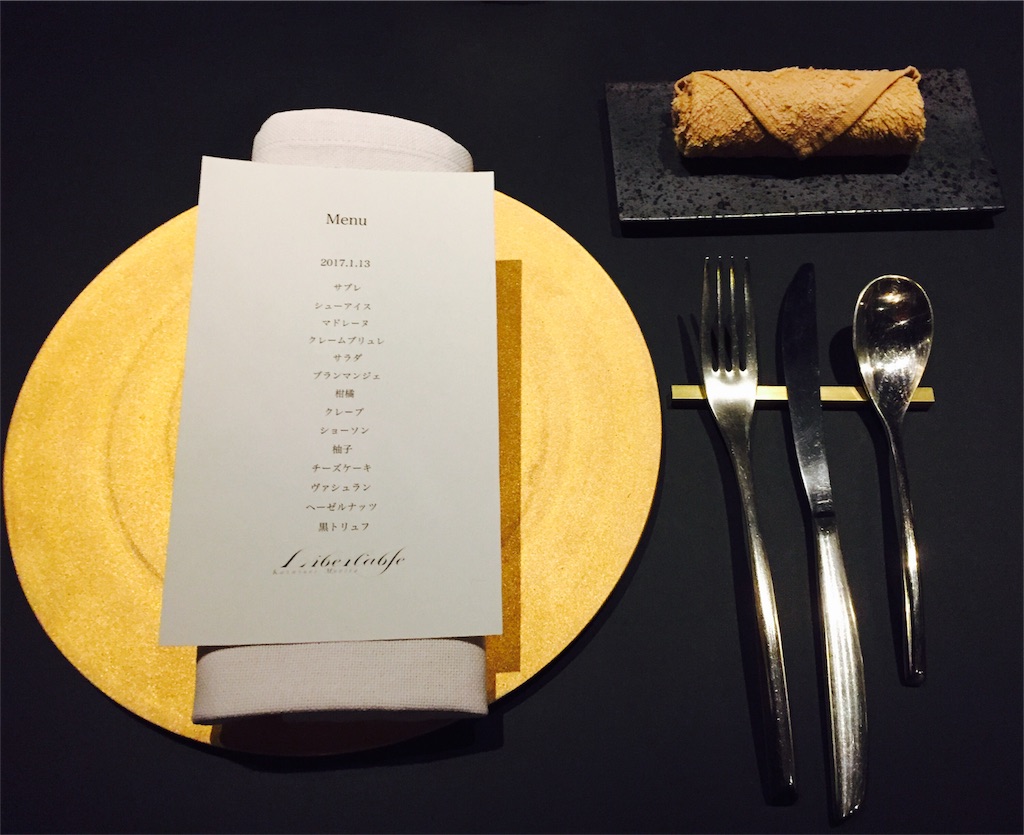 Menu
2017.1.13
サブレ
シューアイス
マドレーヌ
クレームブリュレ
サラダ
ブランマンジェ
柑橘
クレープ
ショーソン
柚子
チーズケーキ
ヴァシュラン
ヘーゼルナッツ
黒トリュフ
Libertable